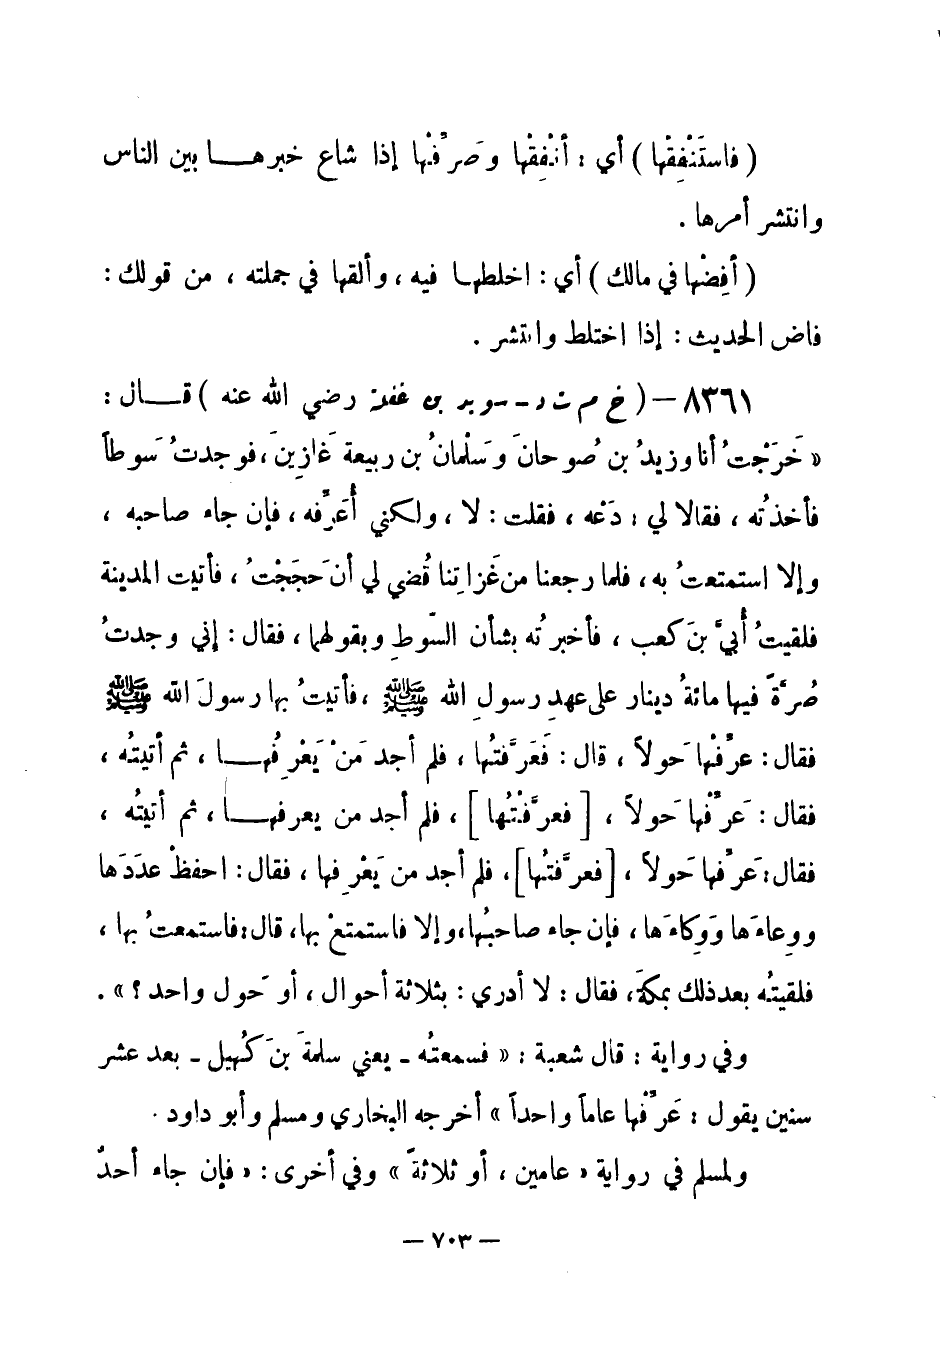 ( فاستَنْفِقْها ) أي : أنْفِقْها وصَرِّفْها إذا شاع خبرهـــا بين الناس
وانتشر أمرها .
( أفِضْها في مالك ) أي : اخلطهـا فيه ، وألقها في جملته ، من قولك :
فاض الحديث : إذا اختلط وانتشر .
٨٣٦١ – ( خ م ت د - سويد بن غفلة رضي الله عنه ) قـــال :
« خَرَجْتُ أنا وزيدُ بن صُوحانَ وَسَلْمانُ بن ربيعة غَازِينَ ، فوجدتُ سَوطاً
فأخذتُه ، فقالا لي : دَعْه ، فقلت : لا ، ولكني أُعَرِّفه ، فإن جاء صاحبه ،
وإلا استمتعتُ به ، فلما رجعنا من غَزاتِنا قُضي لي أن حَجَجْتُ ، فأتيت المدينة
فلقيتُ أُبيَّ بنَ كعب ، فأخبرتُه بشأن السّوطِ وبقولهما ، فقال : إني وجدتُ
صُرَّةً فيها مائةُ دينار على عهدِ رسولِ الله ﷺ ، فأتيتُ بها رسولَ الله ﷺ
فقال : عرِّفْها حَولاً ، قال : فَعَرَّفتُها ، فلم أجد مَنْ يَعْرِفُهـــا ، ثم أتيتُه ،
فقال : عَرِّفْها حَولاً ، [ فعرَّفْتُها ] ، فلم أجد من يعرفهـــا ، ثم أتيتُه ،
فقال : عَرِّفها حَولاً ، [فعرَّفتُها] ، فلم أجد من يَعْرِفها ، فقال : احفظْ عدَدَها
ووِعاءَها وَوِكاءَها ، فإن جاء صاحبُها ، وإلا فاستمتعْ بها ، قال : فاستمعتُ بها ،
فلقيتُه بعد ذلك بمكةَ ، فقال : لا أدري : بثلاثة أحوال ، أو حَول واحد ؟ » .
وفي رواية : قال شعبة : « فسمعتُه ـ يعني سلمةَ بنَ كُهيل ـ بعد عشر
سنين يقول : عَرِّفْها عاماً واحداً » أخرجه البخاري ومسلم وأبو داود .
ولمسلم في رواية « عامين ، أو ثلاثةً » وفي أخرى : « فإن جاء أحدٌ
— ٧٠٣ —